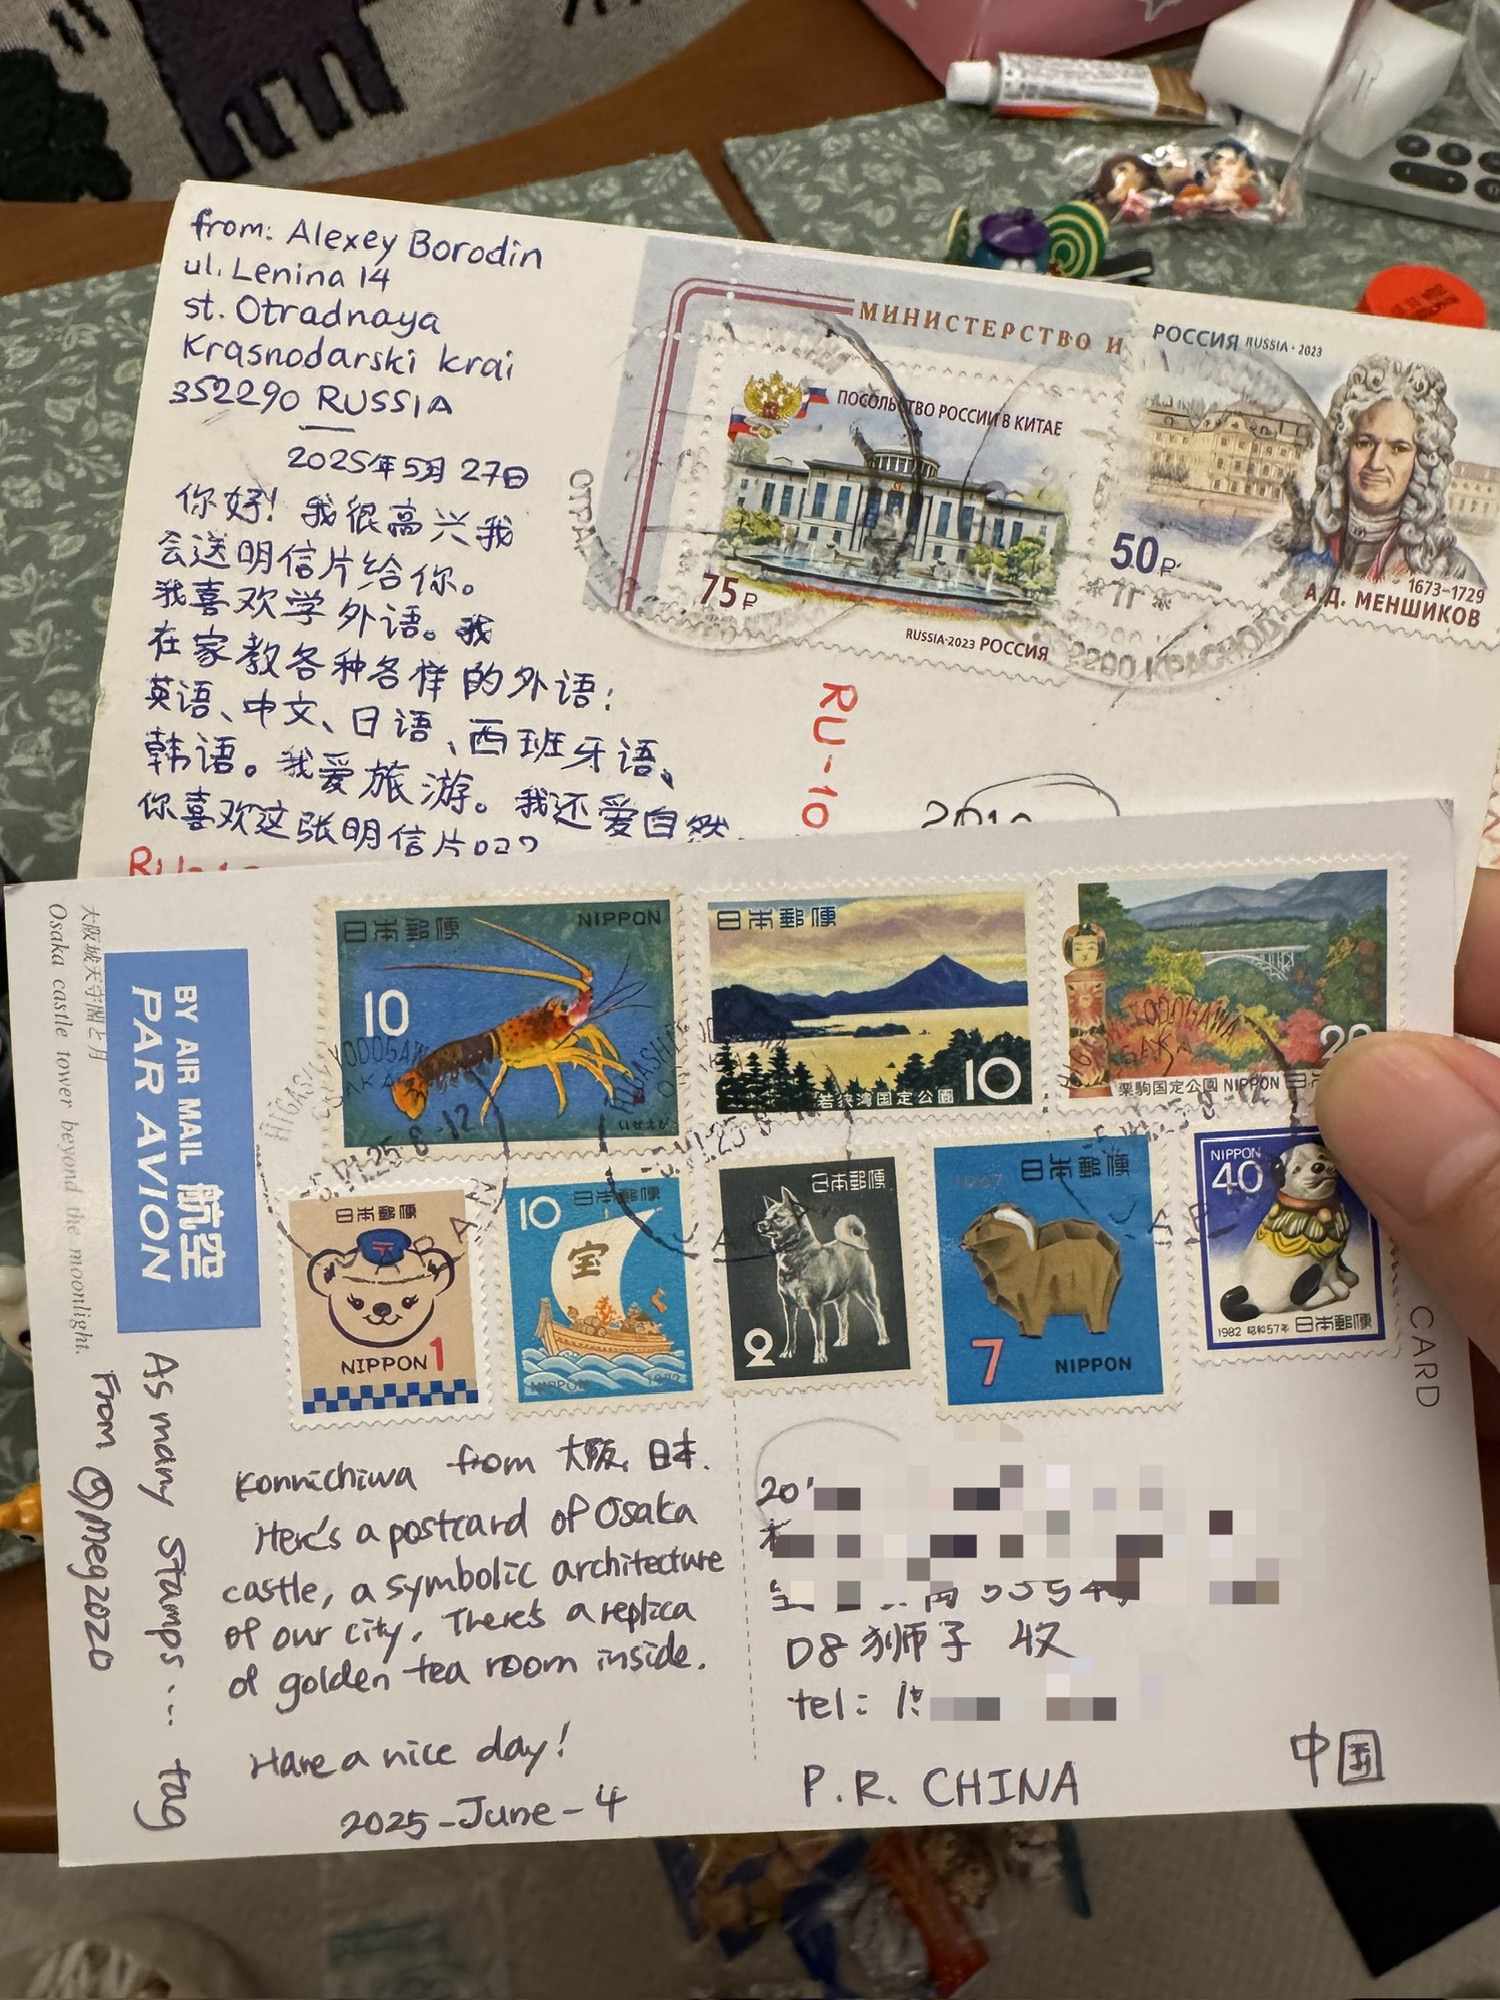 from: Alexey Borodin
ul. Lenina 14
st. Otradnaya
Krasnodarski krai
352290 RUSSIA
2025年5月27日
你好！我很高兴我
会送明信片给你。
我喜欢学外语。我
在家教各种各样的外语：
英语、中文、日语、西班牙语、
韩语。我爱旅游。我还爱自然
你喜欢这张明信片吗？
МИНИСТЕРСТВО И
ПОСОЛЬСТВО РОССИИ В КИТАЕ
75 ₽
RUSSIA·2023 РОССИЯ
РОССИЯ RUSSIA·2023
50 ₽
1673-1729
А.Д. МЕНШИКОВ
КРАСНОД
RU-10
大阪城天守閣と月
Osaka castle tower beyond the moonlight.
BY AIR MAIL 航空
PAR AVION
日本郵便 NIPPON
10
日本郵便
10
若狭湾国定公園
20
栗駒国定公園 NIPPON
日本郵便
NIPPON 1
10 日本郵便
宝
NIPPON 1972
日本郵便
2
1967 日本郵便
7 NIPPON
NIPPON
40
1982 昭和57年 日本郵便
YODOGAWA
CARD
As many stamps... tag
From @meg2020
Konnichiwa from 大阪, 日本.
Here's a postcard of Osaka
castle, a symbolic architecture
of our city. There's a replica
of golden tea room inside.
Have a nice day!
2025-June-4
D8狮子 收
tel:
P.R. CHINA
中国